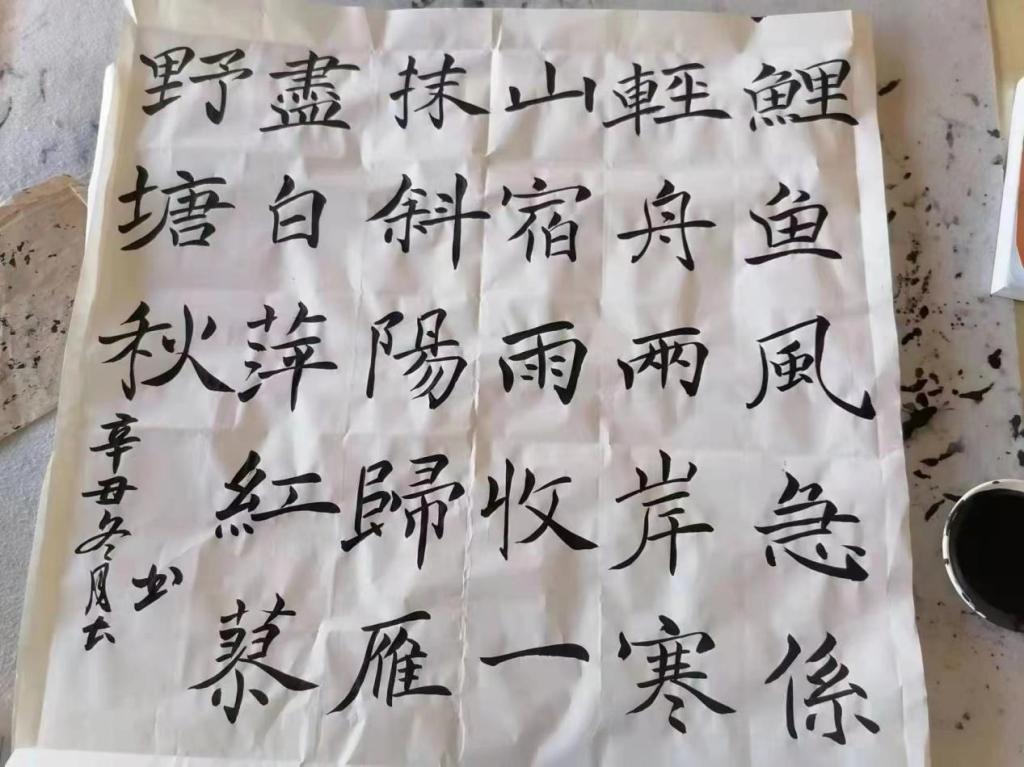 鯉鱼風急係
輕舟兩岸寒
山宿雨收一
抹斜陽歸雁
盡白萍紅蓼
野塘秋
辛丑冬月
书